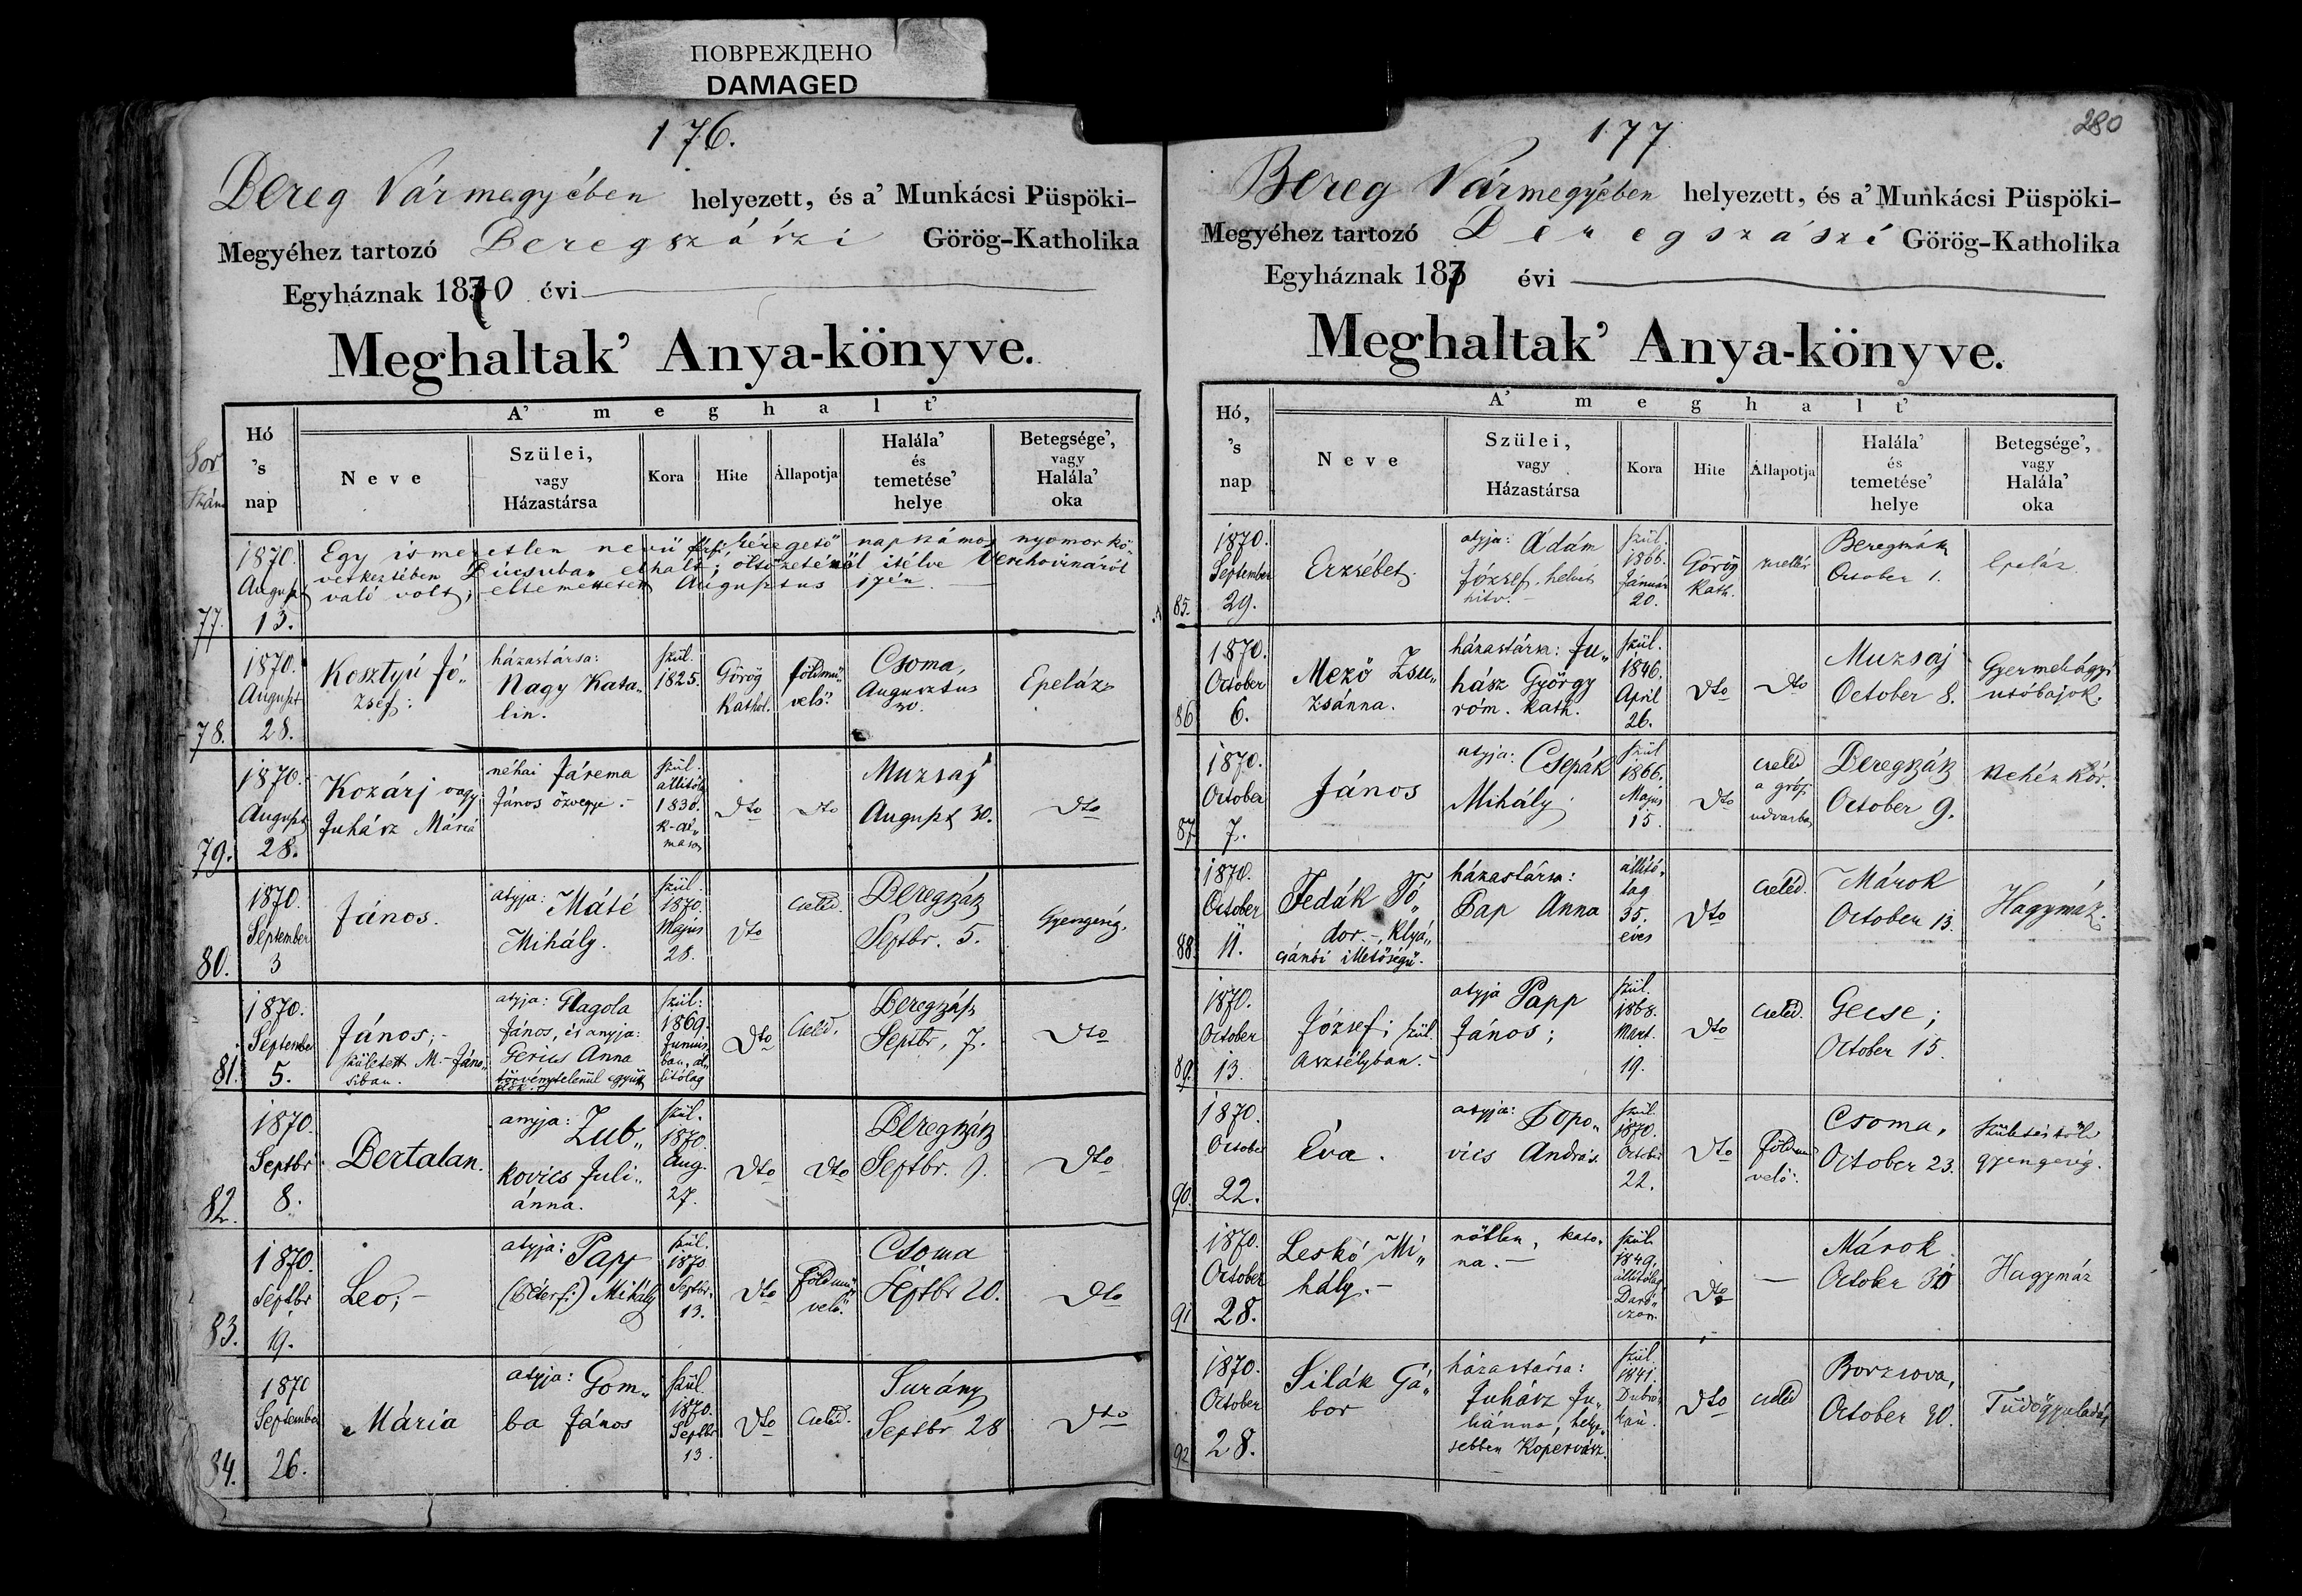 ПОВРЕЖДЕНО
DAMAGED
176.
Bereg Vármegyében helyezett, és a' Munkácsi Püspöki-
Megyéhez tartozó Beregszászi Görög-Katholika
Egyháznak 1870 évi
Meghaltak' Anya-könyve.
Sor
szám
Hó
's
nap
A' meghalt'
Neve
Szülei,
vagy
Házastársa
Kora
Hite
Állapotja
Halála'
és
temetése'
helye
Betegsége',
vagy
Halála'
oka
77.
1870.
August
13.
Egy ismeretlen nevű férfi, kéregető napszámos nyomorkö-
vetkeztében Búcsuban elhalt; öltözetéről itélve Verchovináról
való volt; eltemettetett Augusztus 15én.
78.
1870.
August
28.
Kosztyú Jó„
zsef:
házastársa:
Nagy Kata„
lin.
szül.
1825.
Görög
Kathol.
földmü„
velö:
Csoma,
Augusztus
30.
Epeláz
79.
1870.
August
28.
Kozárj vagy
Juhász Mária
néhai Járema
János özvegye.-
szül.
állitólag
1830.
K-al„
mason
dto
dto
Muzsaj
August 30.
dto
80.
1870.
September
3
János.
atyja: Máté
Mihály.
szül.
1870.
Május
28.
dto
cseléd.
Beregszász
Septbr. 5.
Gyengeség.
81.
1870.
September
5.
János;-
született M.-Jáno„
siban.
atyja: Glagola
János, és anyja:
Gerius Anna
törvénytelenül együtt
élők
szül:
1869.
Junius
ban, ál„
litólag
dto
Cseléd.
Beregszász
Septbr, 7.
dto
82.
1870.
Septbr
8.
Bertalan.
anyja: Zub„
kovics Juli„
ánna.
szül.
1870.
Aug.
27.
dto
dto
Beregszász
Septbr. 9.
dto
83.
1870.
Septbr
19.
Leo;-
atyja: Papp
(Péterfi) Mihály
szül.
1870
Septbr.
13.
dto
földmű
velő.
Csoma
Septbr 20.
dto
84.
1870
September
26.
Mária
atyja: Gom„
ba János
szül.
1870.
Septbr
13.
dto
Cseléd.
Surány
Septbr 28
dto
280
177
Bereg Vármegyében helyezett, és a' Munkácsi Püspöki-
Megyéhez tartozó Beregszászi Görög-Katholika
Egyháznak 187 évi
Meghaltak' Anya-könyve.
Hó,
's
nap
A' meghalt'
Neve
Szülei,
vagy
Házastársa
Kora
Hite
Állapotja
Halála'
és
temetése'
helye
Betegsége',
vagy
Halála'
oka
85.
1870.
September
29.
Erzsébet.
atyja: Ádám
József, helvét
hitv.-
szül.
1866.
Január
20.
Görög
Kath.
Beregszász
October 1.
Epeláz
86
1870.
October
6.
Mező Zsu„
zsánna.
házastársa: Ju„
hász György
róm. kath.
szül.
1846.
April
26.
dto
dto
Muzsaj
October 8.
Gyermekágyi
utóbajok.
87.
1870.
October
7.
János
atyja: Csepák
Mihály
szül
1866.
Május
15.
dto
cseléd
a gróf
udvarban
Beregszász
October 9.
nehéz kór.
88.
1870.
October
11.
Fedák Tó„
dor.-, Klyá„
csánói illetőségű.
házastársa:
Pap Anna
állító„
lag
35.
éves
dto
Cseléd.
Márok
October 13.
Hagymáz.
89.
1870.
October
13.
József; szül.
Asztélyban.-
atyja Papp
János;
szül.
1868.
Mart.
19.
dto
cseléd.
Gecse;
October 15.
90.
1870.
October
22.
Éva.
atyja: Popo„
vics András.
szül.
1870.
October
22.
dto
földmü
velö.
Csoma,
October 23.
Születéstőli
gyengeség.
91
1870.
October
28.
Leskó Mi„
hály.-
nőtlen, kato„
na.-
szül.
1849.
állitólag
Daró„
czon.
dto
—
Márok
October 30
Hagymáz
92
1870.
October
28.
Silák Gá„
bor
házastársa:
Juhász Ju„
liánna, helye„
sebben Kopervász.
szül.
1841.
dto
cseléd
Borzsova,
October 30.
Tüdőgyuladás